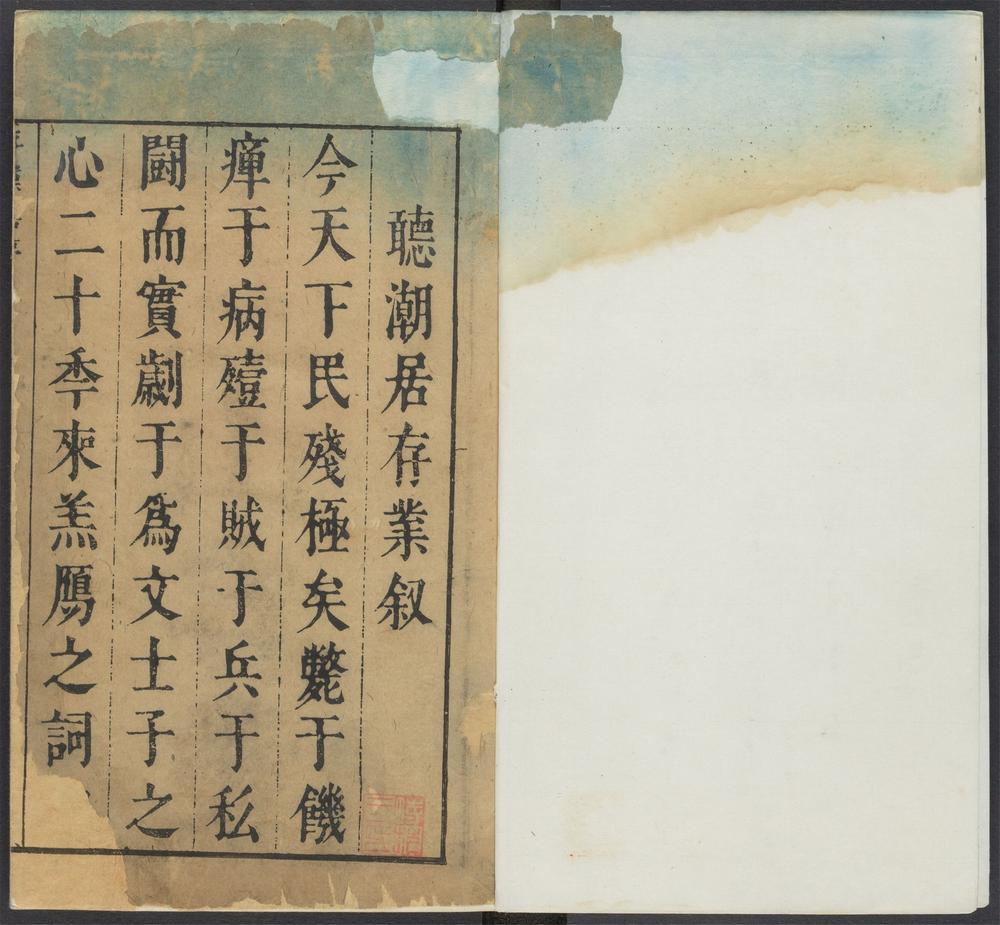 聽潮居存業叙
今天下民殘極矣斃于饑
瘴于病殪于賊于兵于私
鬪而實劌于為文士子之
心二十季來羔鴈之詞